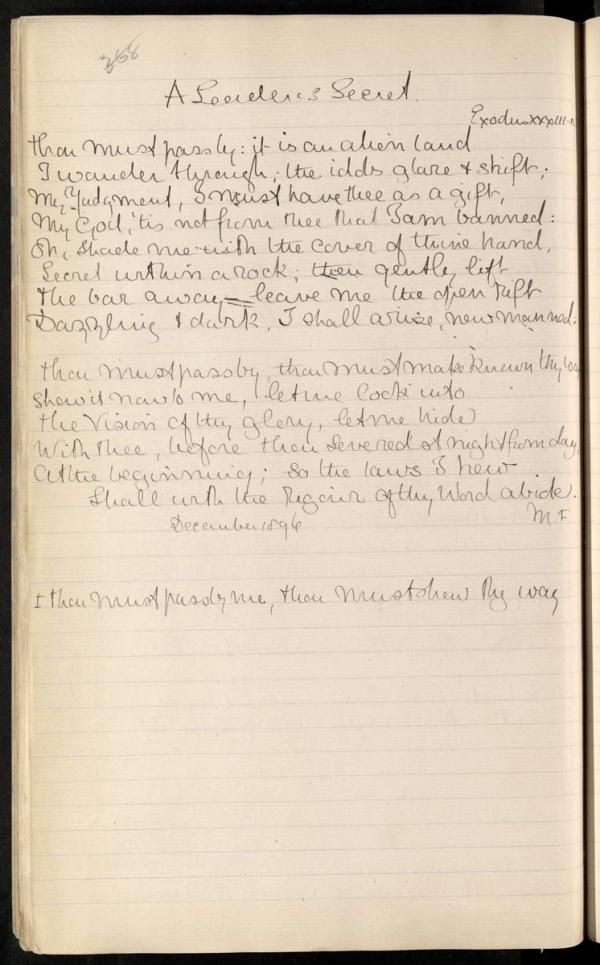 368
A Leader's Secret.
Exodus XXXIII
Thou must pass by: it is an alien land
I wander through; the idols glare & shift;
My Judgment, I must have thee as a gift,
My God, 'tis not from thee that I am banned:
Oh, shade me with the cover of thine hand,
Secret within a rock; then gently lift
the bar away – leave me the open rift
Dazzling & dark, I shall arise, new manned:
thou must pass by, thou must make known thy way
shew it now to me, let me look into
the Vision of thy glory, let me hide
With thee, before thou severed'st night from day,
At the beginning; so the laws I hew
Shall with the Rigour of thy Word abide.
December 1896
M.F
I thou must pass by me, thou must shew thy way